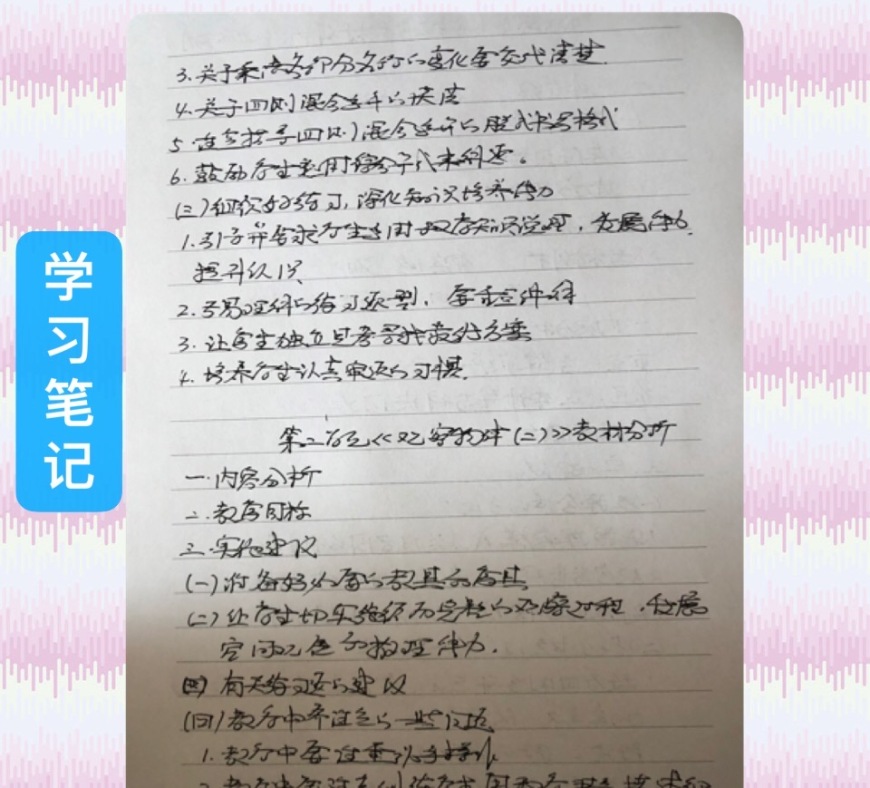 学习笔记
3.关于乘法各部分名称的变化要交代清楚.
4.关于四则混合运算的
5.含括号四则混合运算的脱式书写格式
6.鼓励学生运用综合算式来解答。
(三)组织好练习,深化知识培养能力
1.引导并要求学生运用已有知识说理,发展能力.
提升认识.
2.容易理解的练习题型,
3.让学生独立思考寻找最好方案
4.培养学生认真审题的习惯.
第二单元《观察物体(二)》教材分析
一.内容分析
二.教学目标
三.实施建议
(一)准备好必要的教具和学具
(二)让学生切实经历完整的观察过程,发展
空间观念和推理能力.
(三)有关练习题的建议
(四)教学中要注意的一些问题
1.教学中要注重认手操作